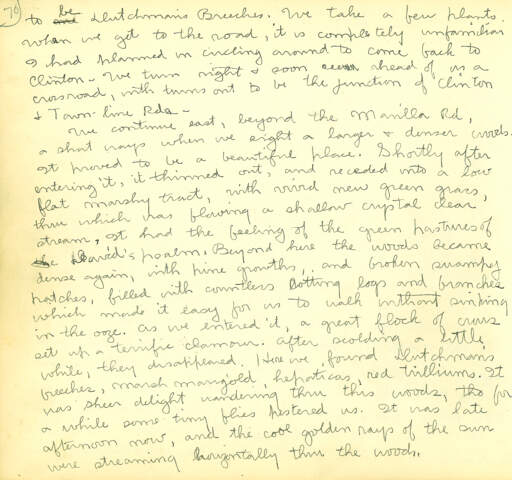 70
to be Dutchmans Breeches. We take a few plants.
When we get to the road, it is completely unfamiliar
I had planned in circling around to come back to
Clinton - We turn right & soon ahead of us a
crossroad, with turns out to be the junction of Clinton
& Town-line Rds -
We continue east, beyond the Manilla Rd,
a short ways when we sight a larger & denser woods.
It proved to be a beautiful place. Shortly after
entering it, it thinned out, and receded into a low
flat marshy tract, with vivid new green grass,
thru which was flowing a shallow crystal clear
stream, It had the feeling of the green pastures of
David's psalm. Beyond here the woods became
dense again, with pine growths, and broken swampy
patches, filled with countless rotting logs and branches
which made it easy for us to walk without sinking
in the ooze. As we entered it, a great flock of crows
set up a terrific clamour. After scolding a little
while, they disappeared. Here we found Dutchmans
breeches, marsh marigold, hepaticas, red trilliums. It
was sheer delight wandering thru this woods, tho for
a while some tiny flies pestered us. It was late
afternoon now, and the cool golden rays of the sun
were streaming horizontally thru the woods.